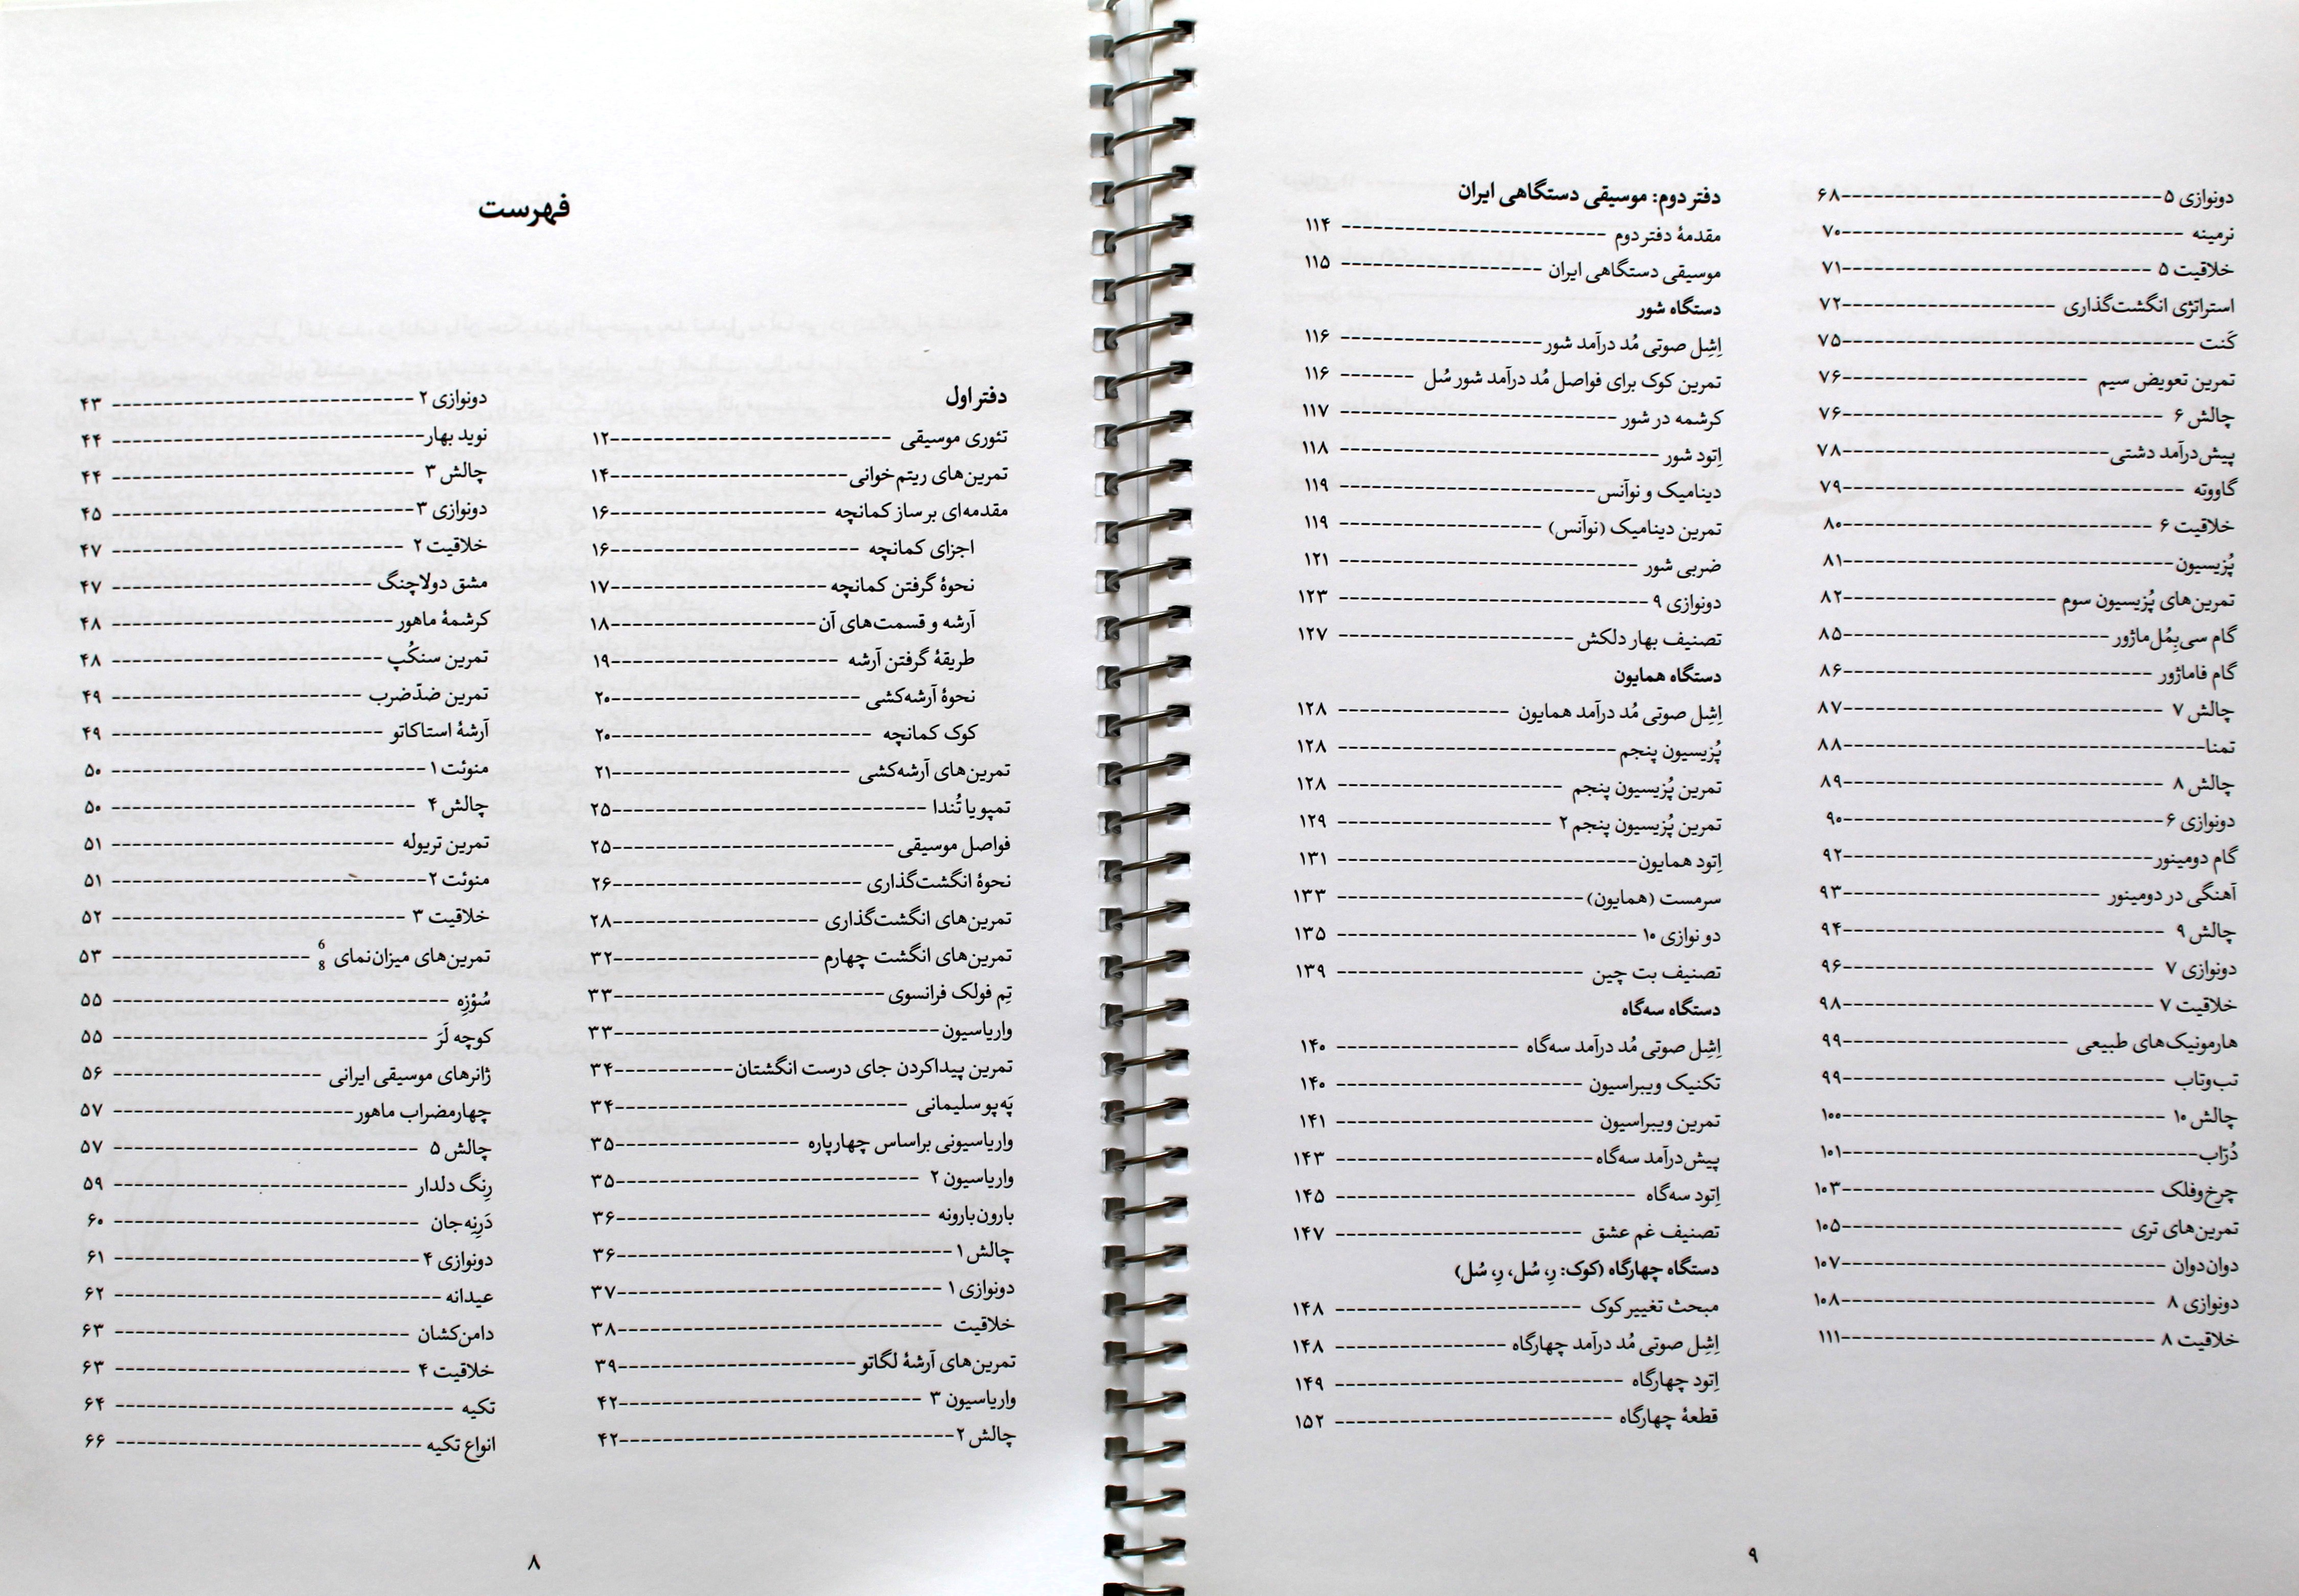 فهرست
دفتر اول
تئوری موسیقی ----------۱۲
تمرین‌های ریتم‌خوانی----------۱۴
مقدمه‌ای بر ساز کمانچه ----------۱۶
اجزای کمانچه ----------۱۶
نحوهٔ گرفتن کمانچه ----------۱۷
آرشه و قسمت‌های آن----------۱۸
طریقهٔ گرفتن آرشه ----------۱۹
نحوهٔ آرشه‌کشی ----------۲۰
کوک کمانچه ----------۲۰
تمرین‌های آرشه‌کشی ----------۲۱
تمپو یا تُندا ----------۲۵
فواصل موسیقی ----------۲۵
نحوهٔ انگشت‌گذاری ----------۲۶
تمرین‌های انگشت‌گذاری ----------۲۸
تمرین‌های انگشت چهارم ----------۳۲
تِم فولک فرانسوی ----------۳۳
واریاسیون----------۳۳
تمرین پیداکردن جای درست انگشتان----------۳۴
پَه‌پو سلیمانی ----------۳۴
واریاسیونی براساس چهارپاره ----------۳۵
واریاسیون ۲ ----------۳۵
بارون‌بارونه ----------۳۶
چالش ۱ ----------۳۶
دونوازی ۱ ----------۳۷
خلاقیت ----------۳۸
تمرین‌های آرشهٔ لگاتو ----------۳۹
واریاسیون ۳ ----------۴۲
چالش ۲ ----------۴۲
دونوازی ۲ ---------- ۴۳
نوید بهار---------- ۴۴
چالش ۳ ---------- ۴۴
دونوازی ۳ ---------- ۴۵
خلاقیت ۲ ---------- ۴۷
مشق دولاچنگ ---------- ۴۷
کرشمهٔ ماهور ---------- ۴۸
تمرین سنکُپ ---------- ۴۸
تمرین ضدّضرب ---------- ۴۹
آرشهٔ استاکاتو ---------- ۴۹
منوئت ۱ ---------- ۵۰
چالش ۴ ---------- ۵۰
تمرین تریوله ---------- ۵۱
منوئت ۲ ---------- ۵۱
خلاقیت ۳ ---------- ۵۲
تمرین‌های میزان‌نمای 6/8 ---------- ۵۳
سُوْزِه ---------- ۵۵
کوچه لَرَ ---------- ۵۵
ژانرهای موسیقی ایرانی ---------- ۵۶
چهارمضراب ماهور---------- ۵۷
چالش ۵ ---------- ۵۷
رِنگ دلدار ---------- ۵۹
دَرِنِه‌جان ---------- ۶۰
دونوازی ۴ ---------- ۶۱
عیدانه ---------- ۶۲
دامن‌کشان ---------- ۶۳
خلاقیت ۴ ---------- ۶۳
تکیه ---------- ۶۴
انواع تکیه ---------- ۶۶
۸
دونوازی ۵ ----------۶۸
نرمینه ----------۷۰
خلاقیت ۵ ----------۷۱
استراتژی انگشت‌گذاری ----------۷۲
کَنت ----------۷۵
تمرین تعویض سیم ----------۷۶
چالش ۶ ----------۷۶
پیش‌درآمد دشتی----------۷۸
گاووته ----------۷۹
خلاقیت ۶ ----------۸۰
پُزیسیون----------۸۱
تمرین‌های پُزیسیون سوم ----------۸۲
گام سی‌بِمُل‌ماژور ----------۸۵
گام فاماژور ----------۸۶
چالش ۷ ----------۸۷
تمنا----------۸۸
چالش ۸ ----------۸۹
دونوازی ۶ ----------۹۰
گام دومینور----------۹۲
آهنگی در دومینور ----------۹۳
چالش ۹ ----------۹۴
دونوازی ۷ ----------۹۶
خلاقیت ۷ ----------۹۸
هارمونیک‌های طبیعی ----------۹۹
تب‌وتاب ----------۹۹
چالش ۱۰ ----------۱۰۰
دُرّاب----------۱۰۱
چرخ‌وفلک ----------۱۰۳
تمرین‌های تری ----------۱۰۵
دوان‌دوان ----------۱۰۷
دونوازی ۸ ----------۱۰۸
خلاقیت ۸ ----------۱۱۱
دفتر دوم: موسیقی دستگاهی ایران
مقدمهٔ دفتر دوم ---------- ۱۱۴
موسیقی دستگاهی ایران ---------- ۱۱۵
دستگاه شور
اِشِل صوتی مُد درآمد شور---------- ۱۱۶
تمرین کوک برای فواصل مُد درآمد شور سُل ------- ۱۱۶
کرشمه در شور ---------- ۱۱۷
اِتود شور ---------- ۱۱۸
دینامیک و نوآنس---------- ۱۱۹
تمرین دینامیک (نوآنس) ---------- ۱۱۹
ضربی شور ---------- ۱۲۱
دونوازی ۹ ---------- ۱۲۳
تصنیف بهار دلکش ---------- ۱۲۷
دستگاه همایون
اِشِل صوتی مُد درآمد همایون ---------- ۱۲۸
پُزیسیون پنجم---------- ۱۲۸
تمرین پُزیسیون پنجم ---------- ۱۲۸
تمرین پُزیسیون پنجم ۲ ---------- ۱۲۹
اِتود همایون---------- ۱۳۱
سرمست (همایون)---------- ۱۳۳
دو نوازی ۱۰ ---------- ۱۳۵
تصنیف بت چین ---------- ۱۳۹
دستگاه سه‌گاه
اِشِل صوتی مُد درآمد سه‌گاه ---------- ۱۴۰
تکنیک ویبراسیون ---------- ۱۴۰
تمرین ویبراسیون ---------- ۱۴۱
پیش‌درآمد سه‌گاه ---------- ۱۴۳
اِتود سه‌گاه ---------- ۱۴۵
تصنیف غم عشق ---------- ۱۴۷
دستگاه چهارگاه (کوک: رِ، سُل، رِ، سُل)
مبحث تغییر کوک ---------- ۱۴۸
اِشِل صوتی مُد درآمد چهارگاه ---------- ۱۴۸
اِتود چهارگاه ---------- ۱۴۹
قطعهٔ چهارگاه ---------- ۱۵۲
۹